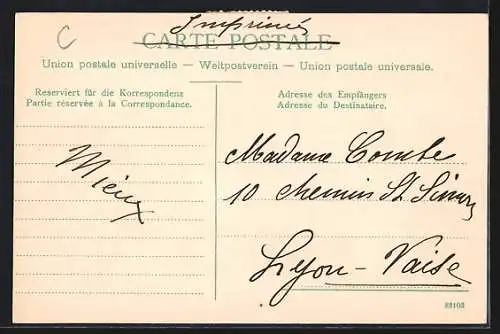 C
Imprimés
CARTE POSTALE
Union postale universelle – Weltpostverein – Union postale universale.
Reserviert für die Korrespondenz
Partie réservée à la Correspondance.
Adresse des Empfängers
Adresse du Destinataire.
Mieux
Madame Combe
10 chemin St
Lyon-Vaise